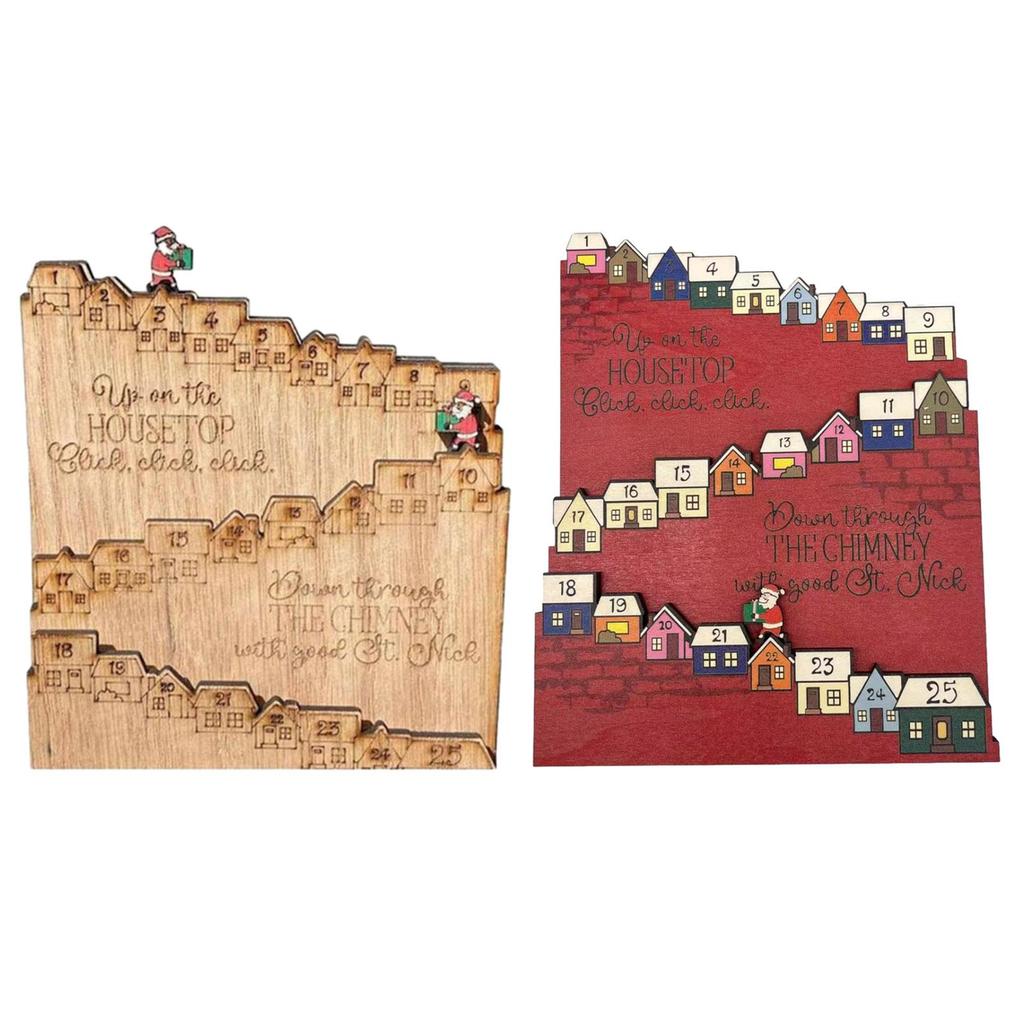 1
2
3
4
5
6
7
8
Up on the
HOUSETOP
Click, click, click.
17
16
15
14
13
12
11
10
Down through
THE CHIMNEY
with good St. Nick
18
19
20
21
22
23
24
25
1
2
3
4
5
6
7
8
9
Up on the
HOUSETOP
Click, click, click.
17
16
15
14
13
12
11
10
Down through
THE CHIMNEY
with good St. Nick
18
19
20
21
22
23
24
25